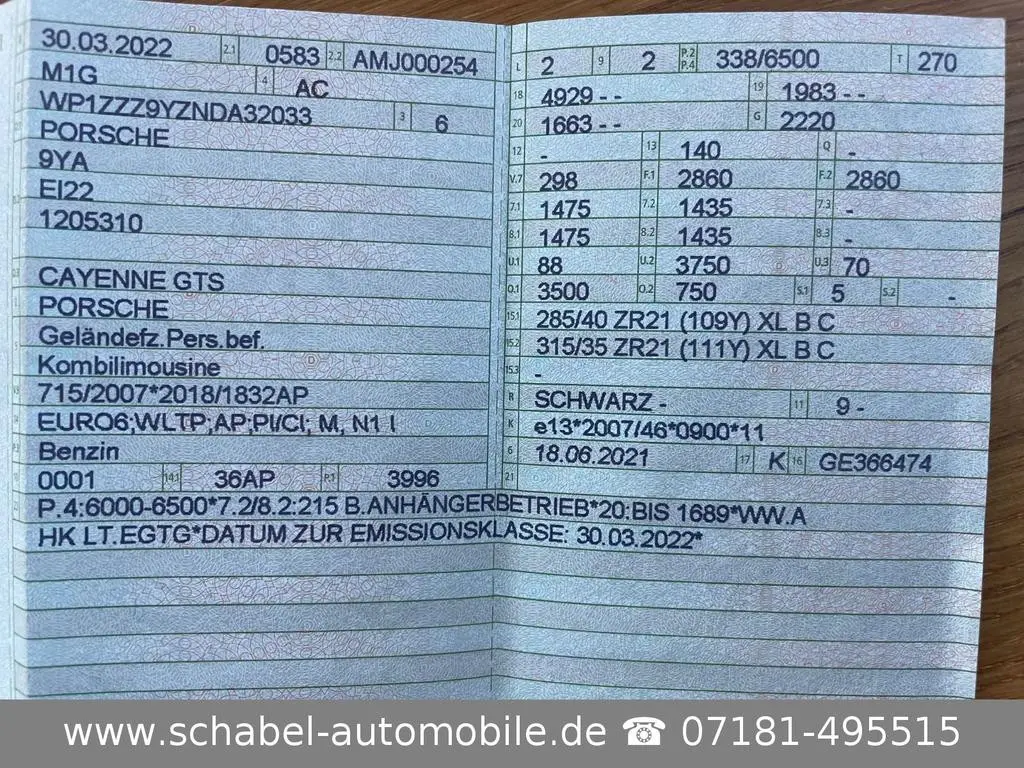 30.03.2022 2.1 0583 2.2 AMJ000254
M1G 4 AC
WP1ZZZ9YZNDA32033 3 6
PORSCHE
9YA
EI22
1205310
CAYENNE GTS
PORSCHE
Geländefz.Pers.bef.
Kombilimousine
715/2007*2018/1832AP
EURO6;WLTP;AP;PI/CI; M, N1 I
Benzin
0001 14.1 36AP P.1 3996
L 2 9 2 P.2 P.4 338/6500 T 270
18 4929 - - 19 1983 - -
20 1663 - - G 2220
12 - 13 140 Q -
V.7 298 F.1 2860 F.2 2860
7.1 1475 7.2 1435 7.3 -
8.1 1475 8.2 1435 8.3 -
U.1 88 U.2 3750 U.3 70
O.1 3500 O.2 750 S.1 5 S.2 -
15.1 285/40 ZR21 (109Y) XL B C
15.2 315/35 ZR21 (111Y) XL B C
15.3 -
R SCHWARZ - 11 9 -
K e13*2007/46*0900*11
6 18.06.2021 17 K 16 GE366474
21
P.4:6000-6500*7.2/8.2:215 B.ANHÄNGERBETRIEB*20:BIS 1689*WW.A
HK LT.EGTG*DATUM ZUR EMISSIONSKLASSE: 30.03.2022*
www.schabel-automobile.de ☎ 07181-495515